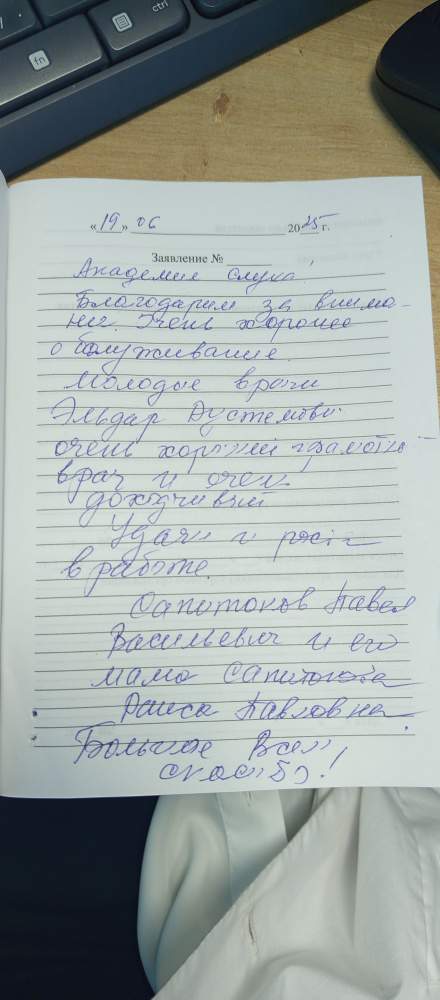 « 19 » 06 2025 г.
Заявление №
Академия слуха!
Благодарим за внима-
ние. Очень хорошее
обслуживание.
Молодые врачи
Эльдар
очень хороший грамотный
врач и очень
доходчивый
Удачи и роста
в работе.
Сапитонов Павел
Васильевич и его
мама Сапитонова
Раиса Павловна.
Большое Всем
спасибо!
ctrl
fn